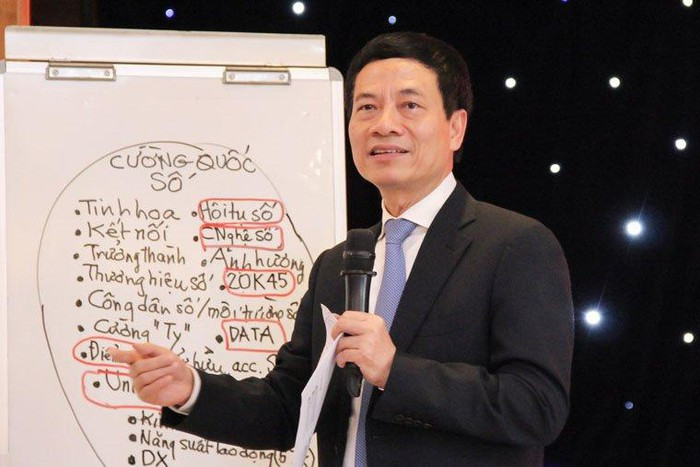 CƯỜNG QUỐC
SỐ
• Tinh hoa • Hội tụ số
• Kết nối • CNghệ số
• Trưởng thành • Ảnh hưởng
• Thương hiệu số • 20K45
• Công dân số/môi trường số
• Cường "Tỵ" • DATA
• acc.
• Năng suất lao động (6
• DX